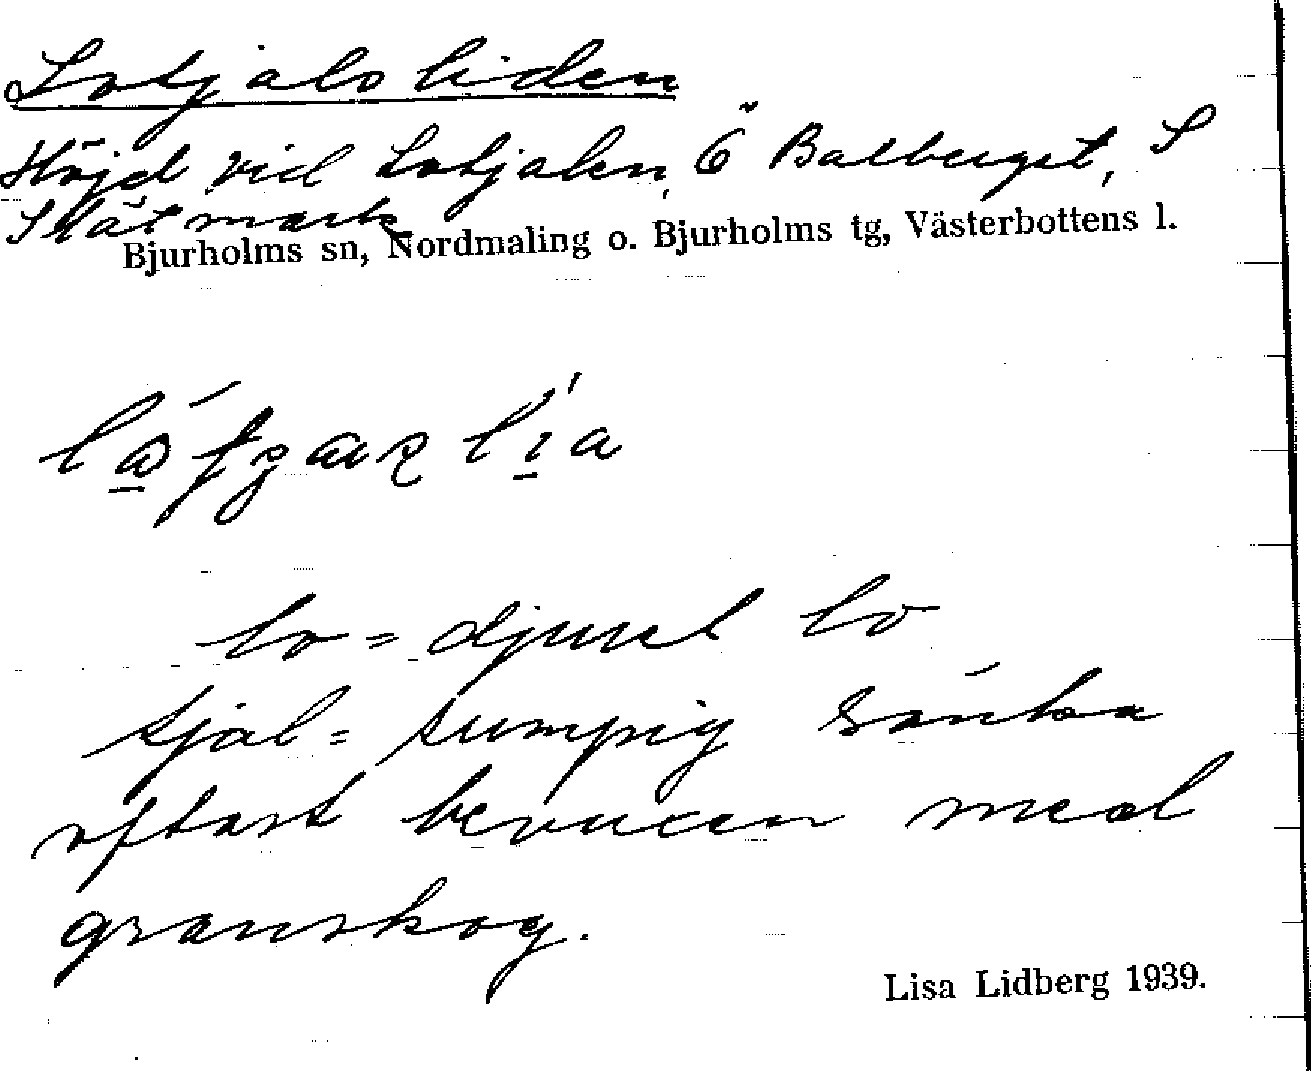 Lotjalsliden
Höjd vid Lotjalen, Ö Balberget, S
Slätmark
Bjurholms sn, Nordmaling o. Bjurholms tg, Västerbottens l.
lo = djuret lo
tjal = sumpig sänka
oftast bevuxen med
granskog.
Lisa Lidberg 1939.